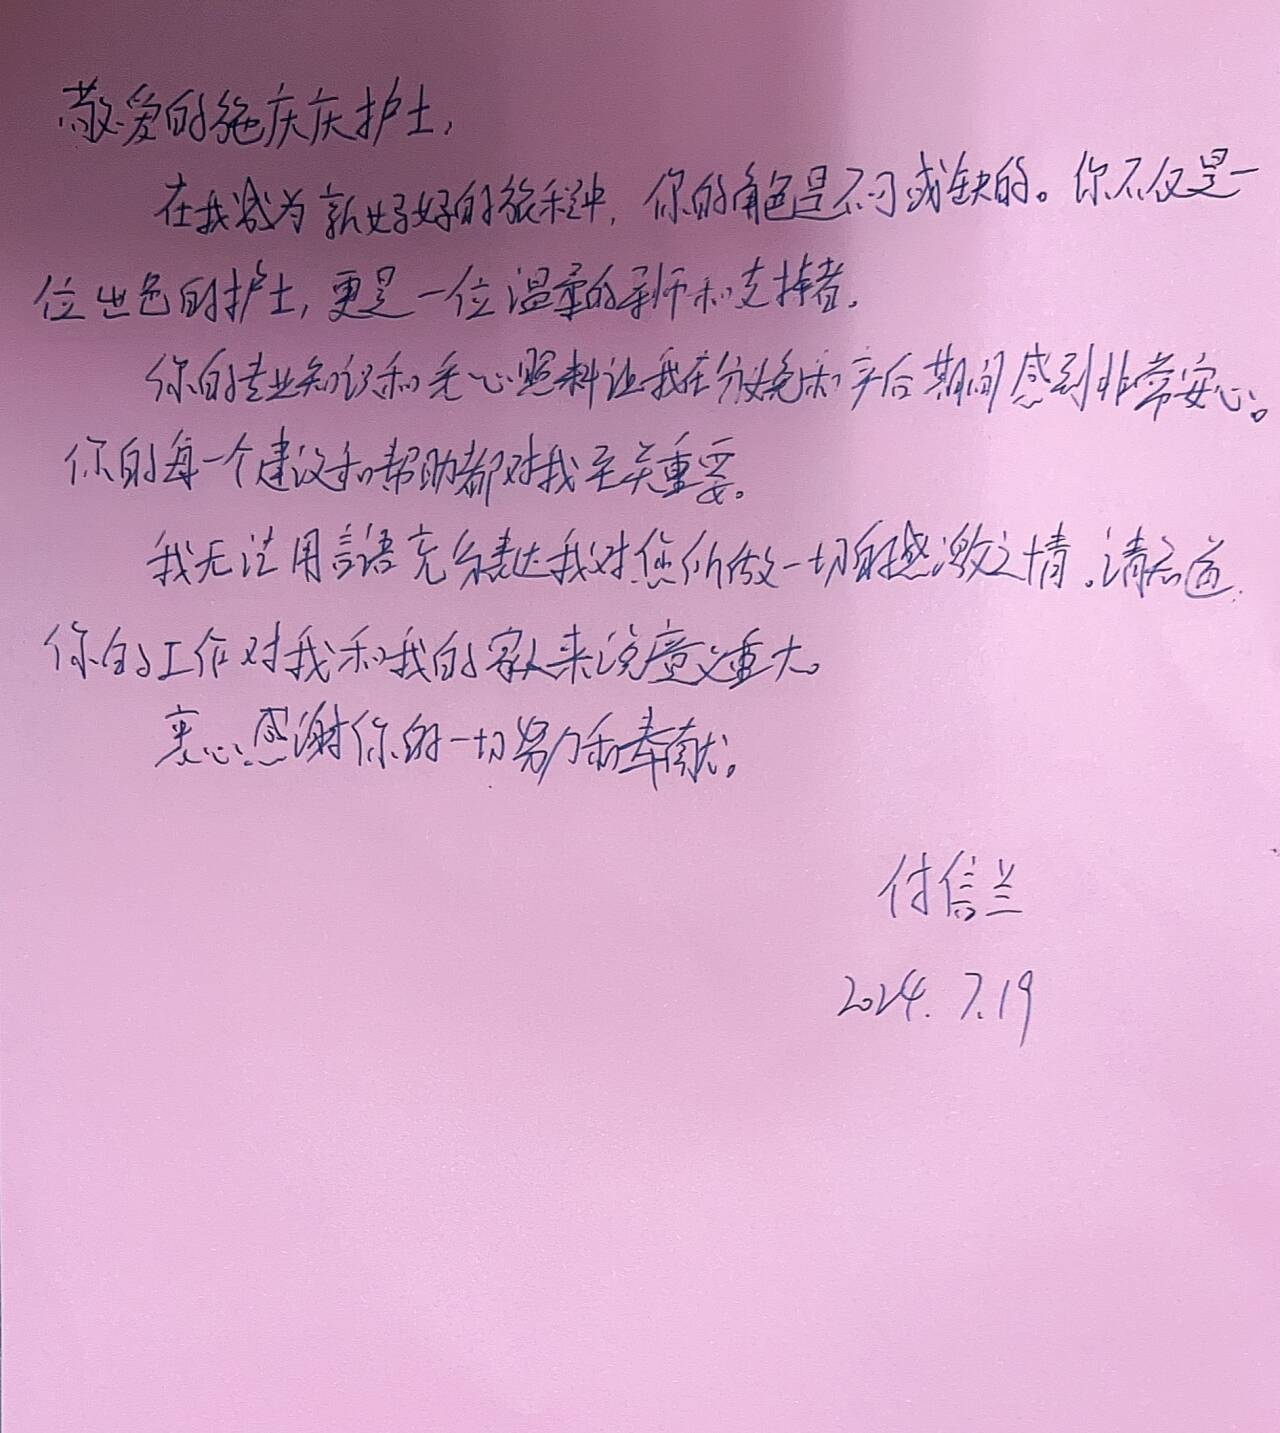 敬爱的施庆庆护士,
在我成为新妈妈的旅程中,你的角色是不可或缺的。你不仅是一
位出色的护士,更是一位温柔的导师和支持者。
你的专业知识和无心照料让我在分娩和产后期间感到非常安心。
你的每一个建议和帮助都对我至关重要。
我无法用言語充分表达我对您所做一切的感激之情。请知道,
你的工作对我和我的家人来说意义重大。
衷心感谢你的一切努力和奉献。
付信兰
2024.7.19